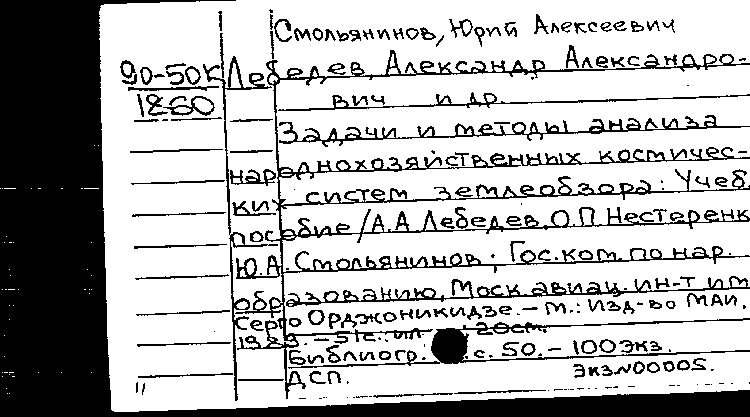 Смольянинов, Юрий Алексеевич
90-50К Лебедев, Александр Александро-
1260 вич и др.
Задачи и методы анализа
народнохозяйственных космичес-
ких систем землеобзора: Учеб.
пособие / А.А. Лебедев, О.П. Нестеренк
Ю.А. Смольянинов; Гос. ком. по нар.
образованию, Моск авиац. ин-т им
Серго Орджоникидзе. – М.: Изд-во МАИ,
1989. – 51с.: ил 20см.
Библиогр. с. 50. – 100 экз.
ДСП. Экз N00005.